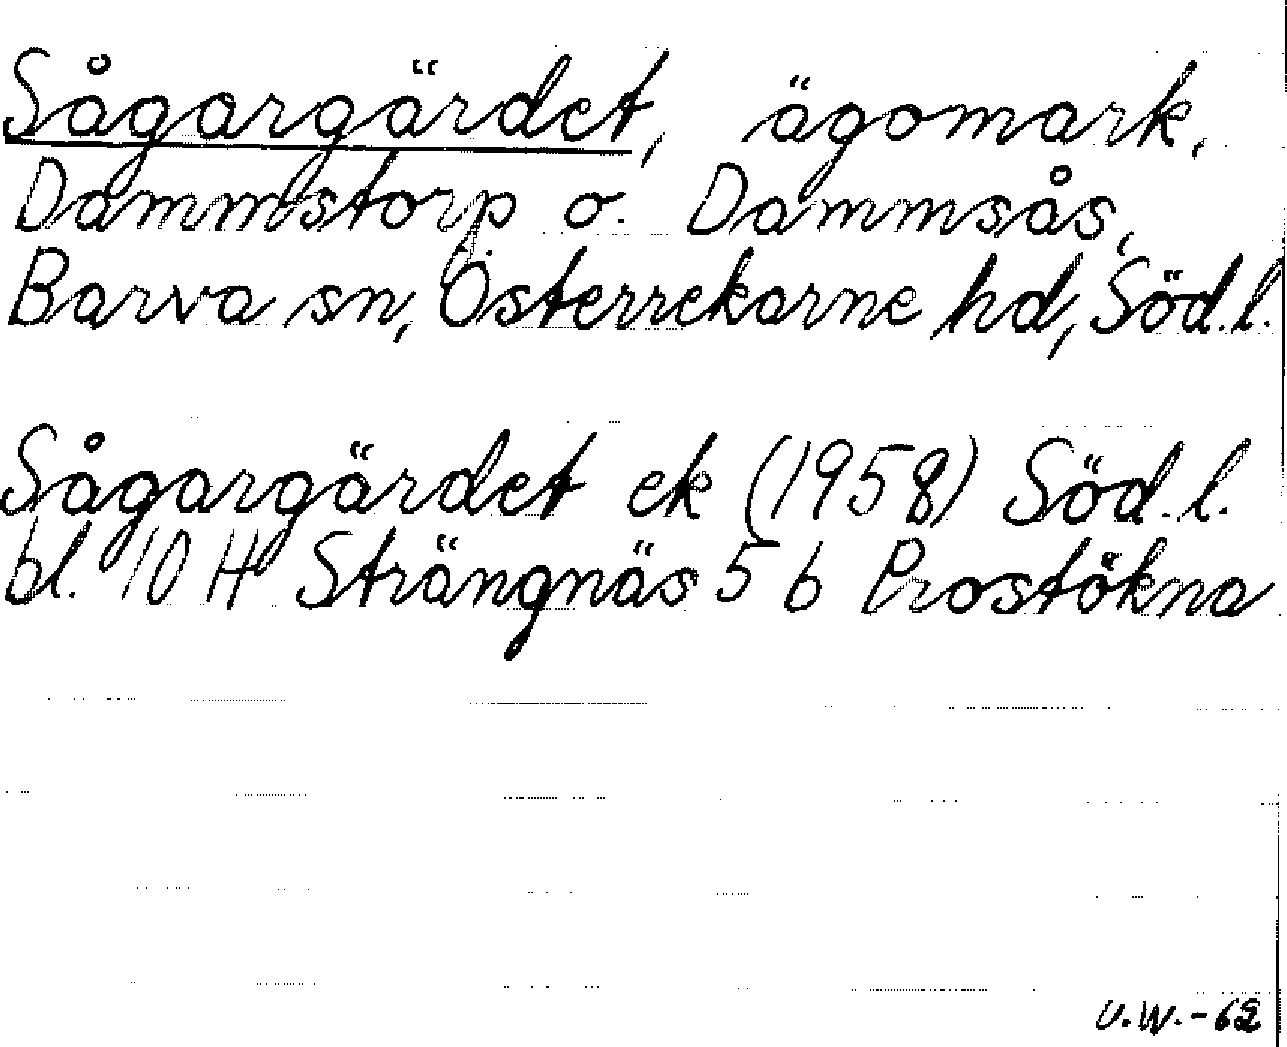 Sågargärdet, ägomark,
Dammstorp o. Dammsås,
Barva sn, Österrekarne hd, Söd.l.
Sågargärdet ek (1958) Söd.l.
bl. 10 H Strängnäs 5 b Prostökna
U.W.-62